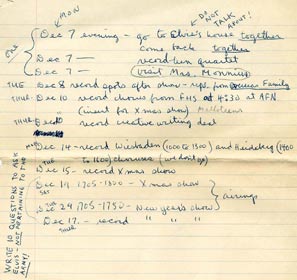 MON
DO NOT TALK ABOUT!
Dec 7 evening - go to Elvis's house together
come back together
Dec 7 - record ten quartet
Dec 7 - (visit Mrs. )
TUE Dec 8 record spots after show - repr. from Family
THUR Dec 10 record chorus from FHS at 4:30 at AFN
(insert for Xmas show)
THUR Dec 10 record creative writing deal
MON Dec 14 - record Wiesbaden (1000 to 1500) and Heidelberg (1400
to 1600) choruses (we don't go)
TUE Dec 15 - record Xmas show
SAT Dec 19, 1705-1800 - Xmas show
airings
Dec 29 1705-1750 - New years show
Dec 17 - record " " "
THUR
WRITE 10 QUESTIONS TO ASK
ELVIS - NOT PERTAINING TO THE
ARMY!